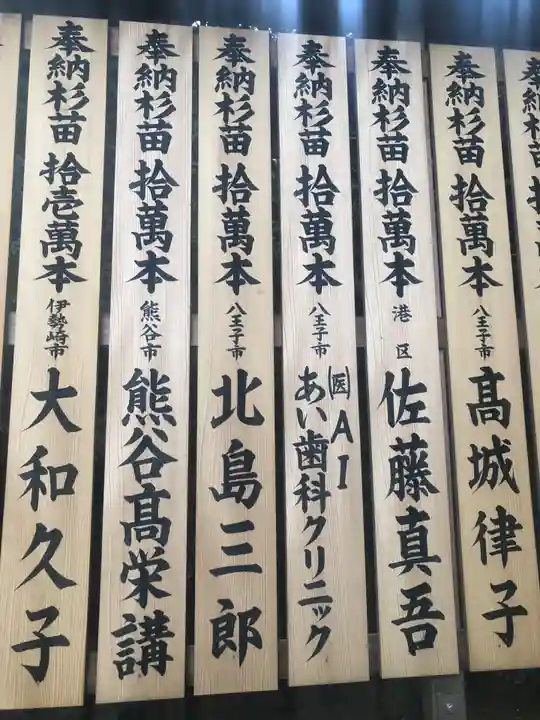 奉納杉苗 拾
奉納杉苗 拾萬本 八王子市 髙城律子
奉納杉苗 拾萬本 港区 佐藤真吾
奉納杉苗 拾萬本 八王子市 ㊩AI あい歯科クリニック
奉納杉苗 拾萬本 八王子市 北島三郎
奉納杉苗 拾萬本 熊谷市 熊谷髙栄講
奉納杉苗 拾壱萬本 伊勢崎市 大和久子